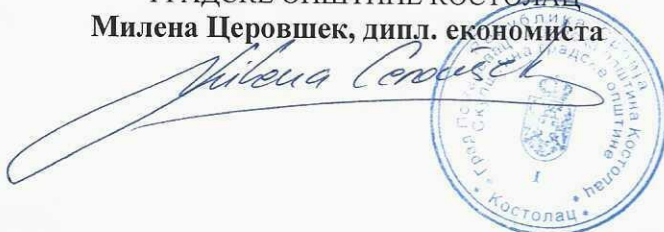 ГРАДСКЕ ОПШТИНЕ КОСТОЛАЦ
Милена Церовшек, дипл. економиста
Milena Cerovšek
Република Србија
Градска општина Костолац
Скупштина градске општине
I
Костолац